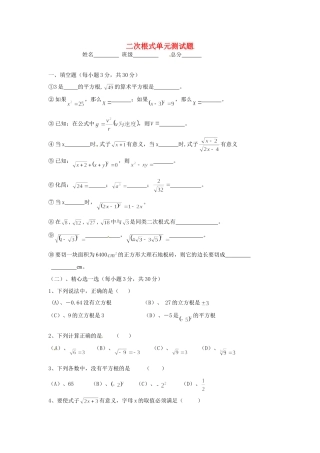 二次根式单元测试题
姓名________ 班级________ 总分______
一、填空题(每小题3分,共30分)
①3是_____的平方根,√49的算术平方根是________.
②如果 , 那么 ;如果√x²=9, 那么
③已知:在公式中 ,则
④当x 时,式子√(x+1)有意义,当x 时,式子√((x-2)/(2x-4))有意义
⑤已知: , 则 x²-xy=
⑥化简:√24= , = ; =
⑦当x 时, √(2x-1)²=1-2x.
⑧在√6、√12、√27、√18中与 是同类二次根式有______.
⑨
⑩要切一块面积为6400cm²的正方形大理石地板砖,则它的边长要切成________
________cm.
(二)、精心选一选(每小题3分,共30分)
1、下列说法中,正确的是( )
(A)、-0.64没有立方根 (B)、 27的立方根是±3
(C)、9的立方根是3 (D)、-5是(-5)²的平方根
2、下列计算正确的是. ( )
(A)、 (B)、 (C)、 (D)、
3、下列各数中,没有平方根的是 ( )
(A)、65 (B)、 (C)、 (D)、1/2
4、要使式子√(2x+3)有意义,字母x的取值必须满足( )